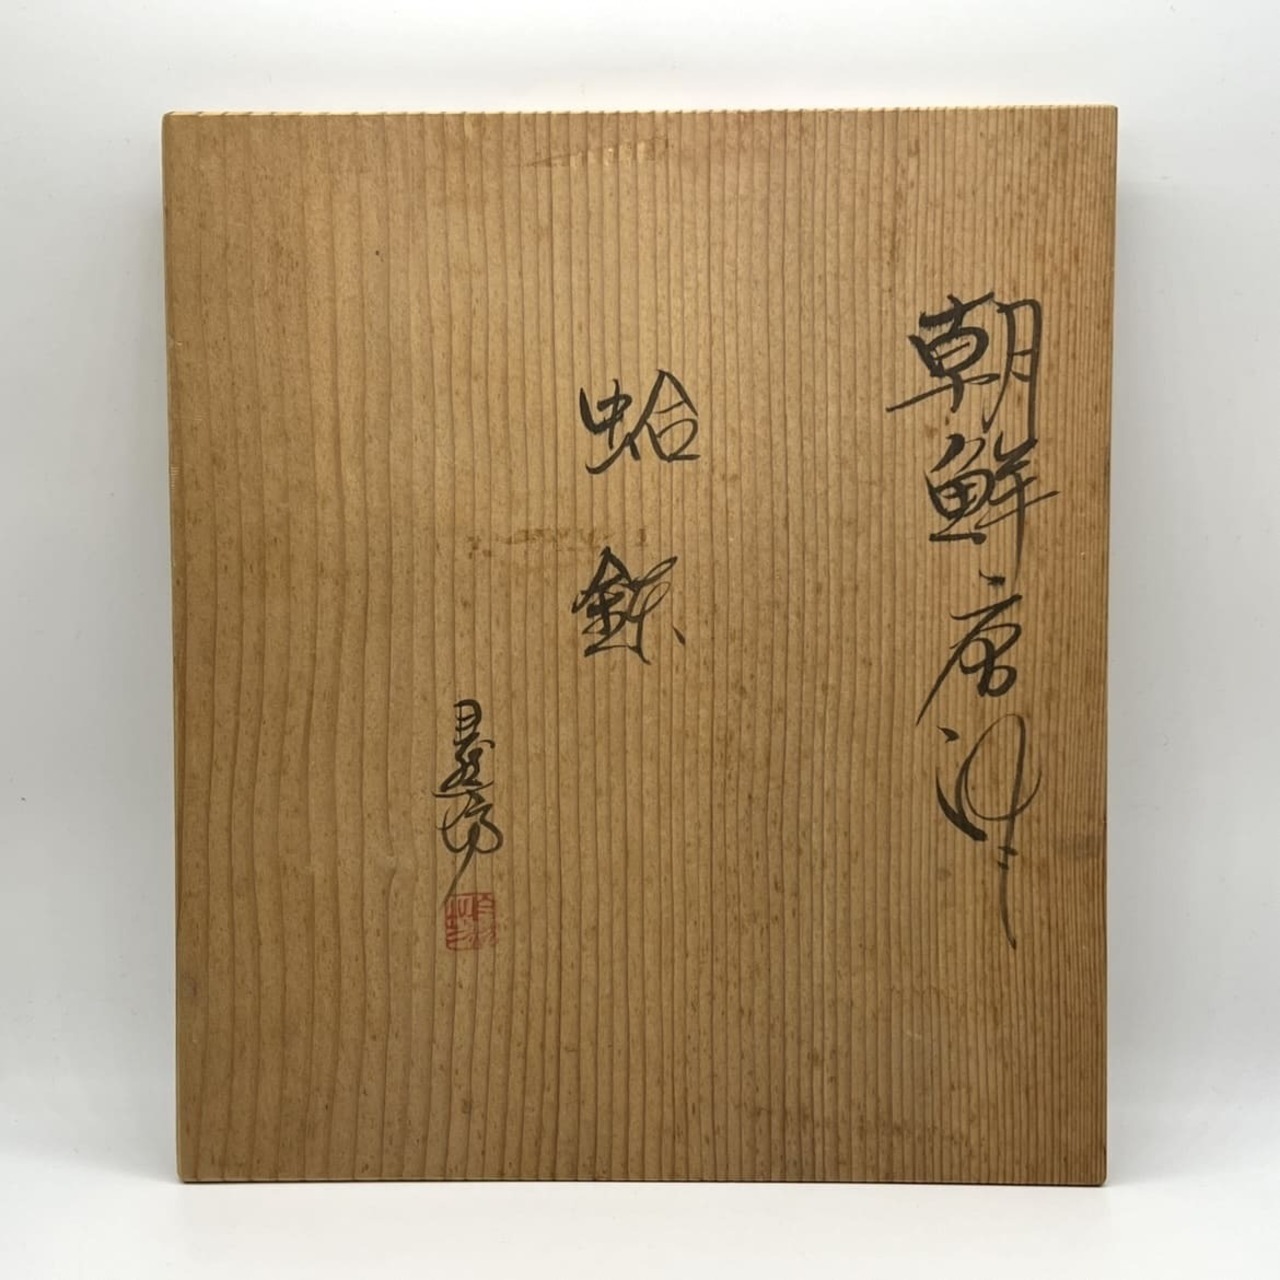 朝鮮唐津
蛤鉢